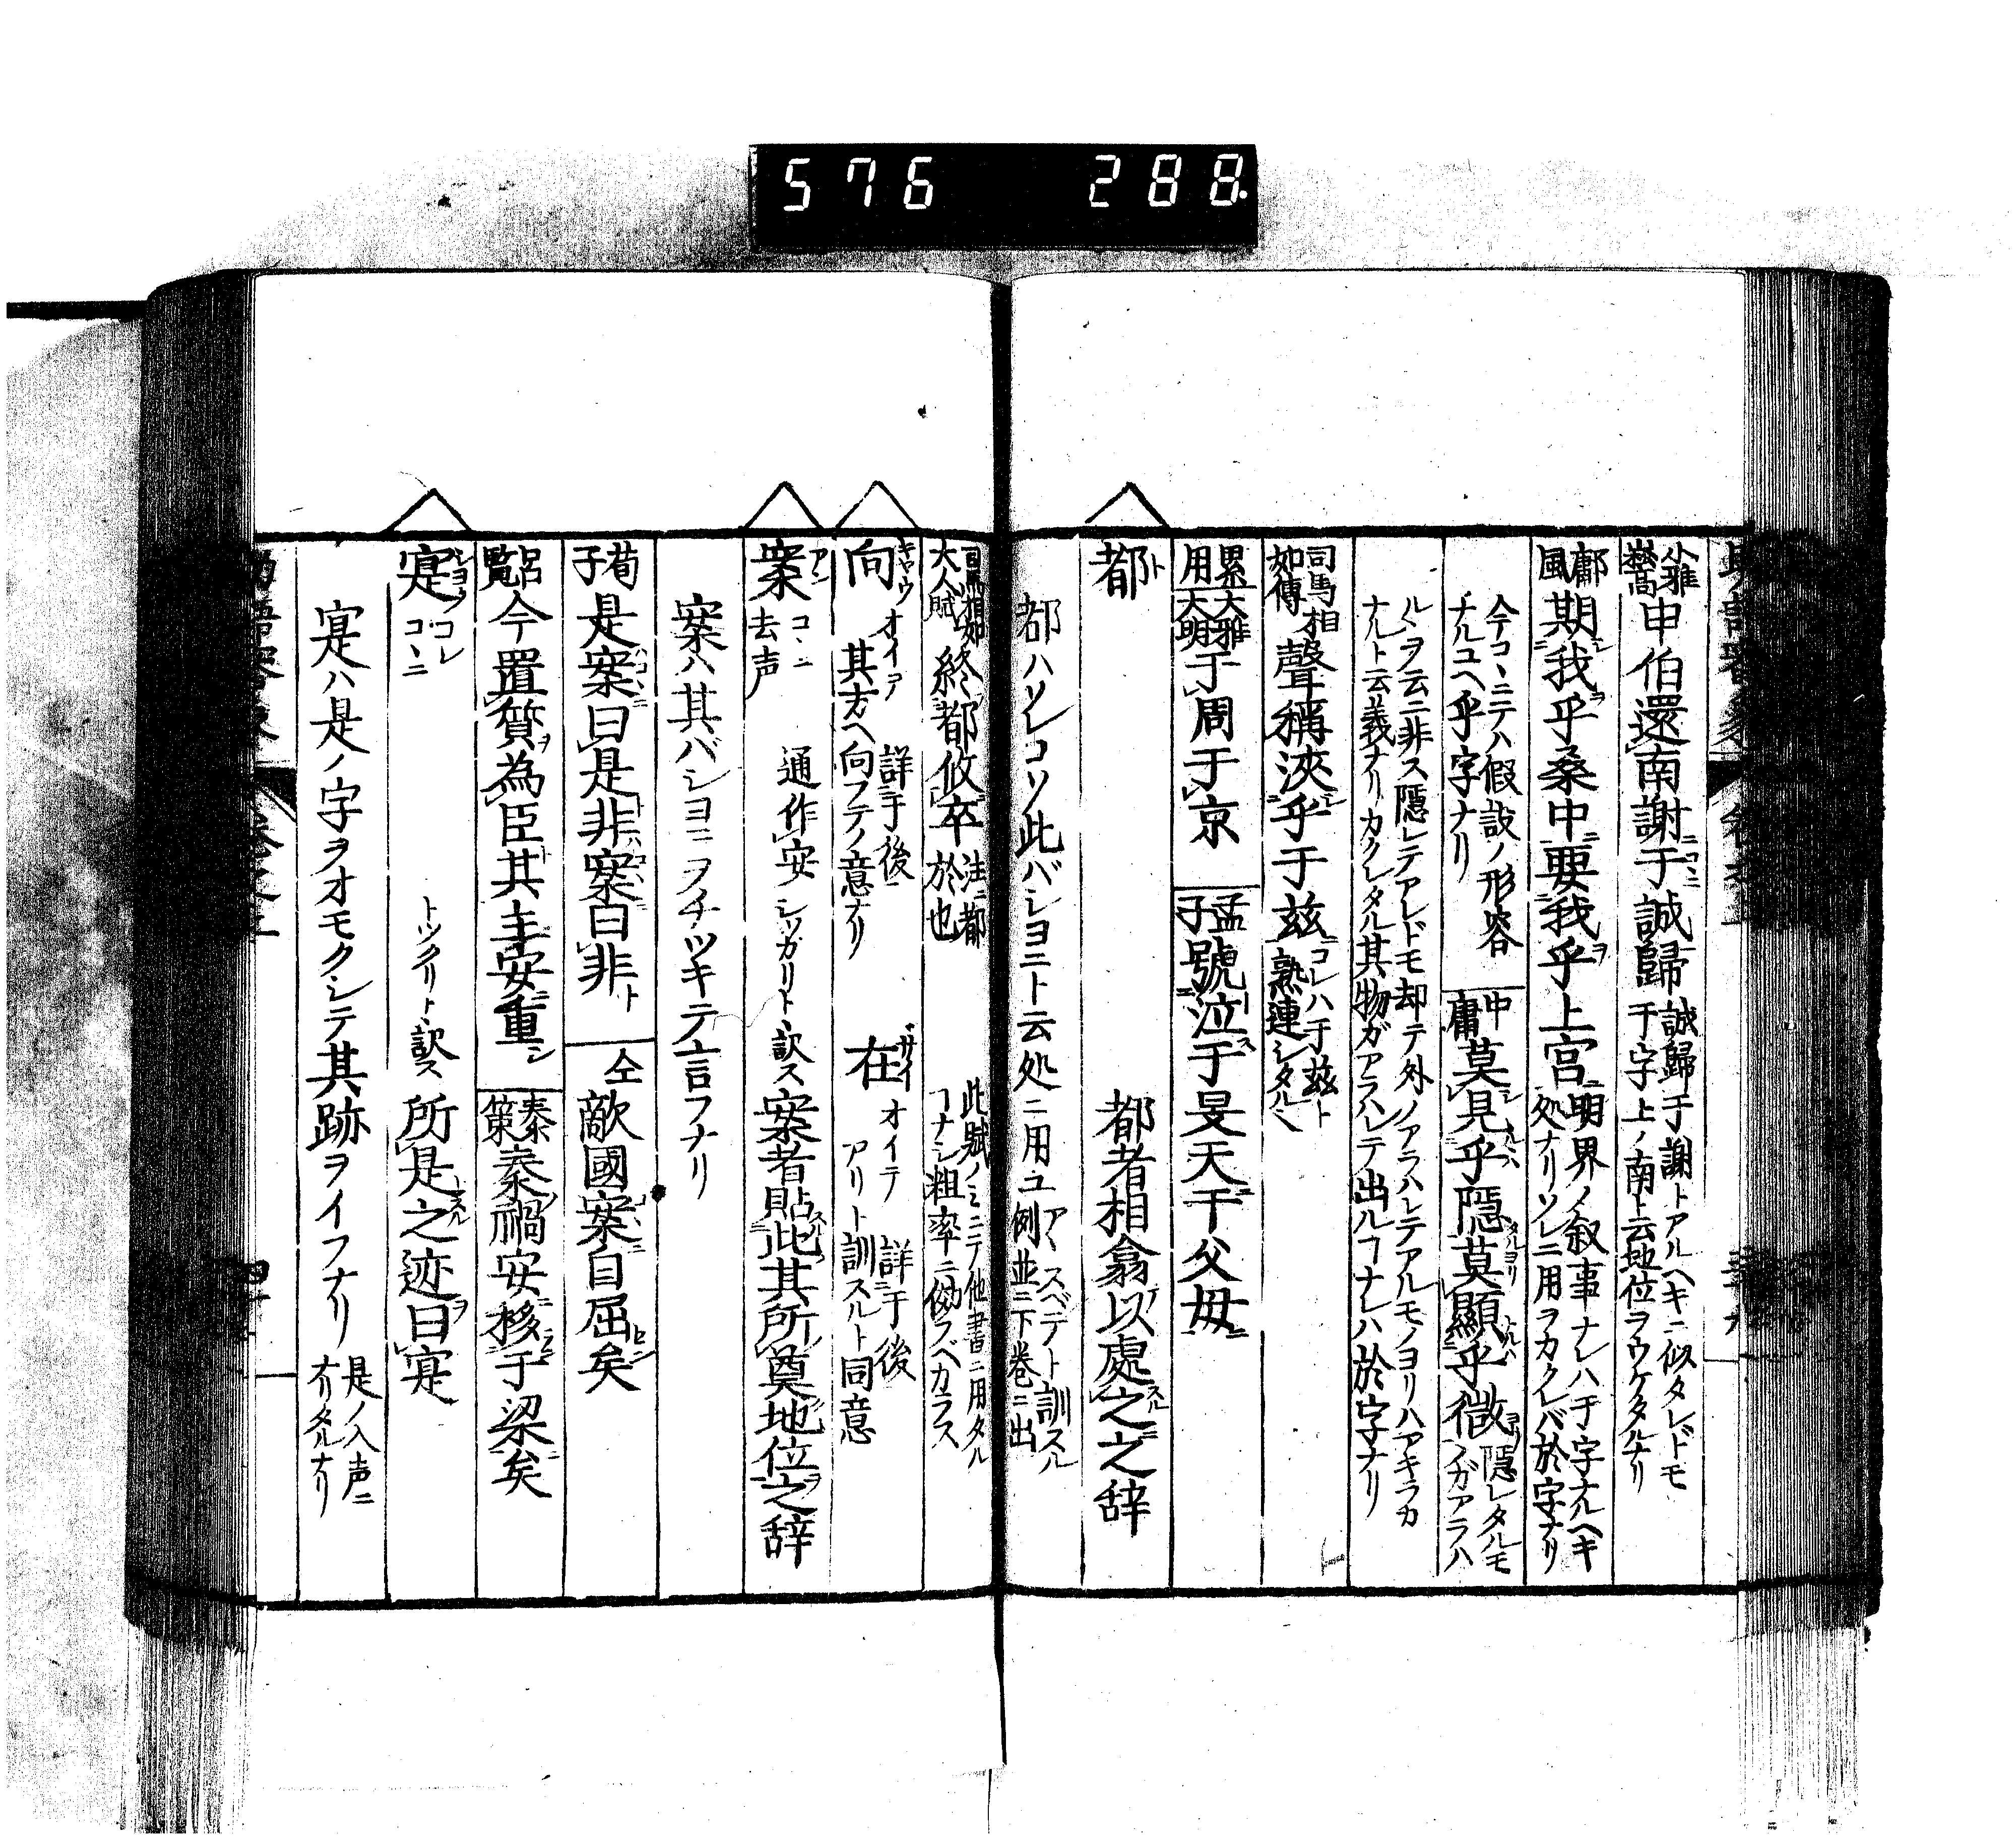 576 288
小雅 崧高 申伯還南謝于誠歸 誠歸于謝トアルヘキニ似タレドモ
于字上ノ南ト云地位ヲウケタルナリ
鄘風 期我乎桑中要我乎上宮 明界ノ叙事ナレハ于字ナルヘキ
処ナリソレニ用ヲカクレバ於字ナリ
今コヽニテハ假設ノ形容
ナルユヘ乎字ナリ
中庸 莫見乎隱莫顯乎微 隱レタルモ
ルヽヲ云ニ非ス隱レテアレドモ却テ外ノアラハレテアルモノヨリハアキラカ
ナルト云義ナリカクレタル其物ガアラハレテ出ルコナレハ於字ナリ
司馬相如傳 聲稱浹乎于茲 コレハ于茲ト
熟連シタル
累用 大雅 大明 于周于京
孟子 號泣于旻天于父母
都 ト 都者相翕以處之之辞
都ハソレコソ此バショニト云処ニ用ユ アヽスベテト訓スル
例並ニ下巻ニ出
司馬相如 大人賦 終都攸卒 注ニ都
於也
此賦ノミニテ他書ニ用タル
コナシ粗率ニ傚フベカラス
向 キャウ オイテ 詳于後
其方ヘ向フテノ意ナリ
在 ザイ オイテ 詳于後
アリト訓スルト同意
案 アン コヽニ 去声 通作安 シッカリト訳ス 案者貼此其所奠地位之辞
案ハ其バショニヲチツキテ言フナリ
荀子 是案曰是非案曰非
仝 敵國案自屈矣
呂覧 今置質為臣其主安重
秦策 秦禍安移于梁矣
寔 ショク コレ コヽニ トックリト訳ス 所是之迹曰寔
寔ハ是ノ字ヲオモクシテ其跡ヲイフナリ 是ノ入声ニ
ナリタルナリ